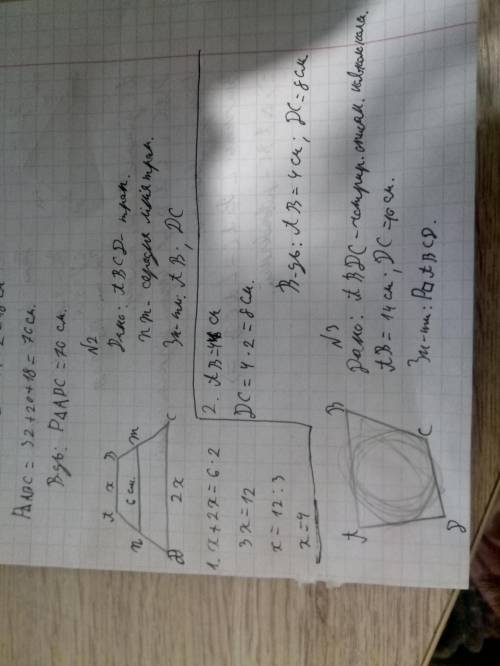 P△ADC = 32+20+18 = 70 см.
В-дь: P△ADC = 70 см.
N2
Дано: ABCD - трап.
nm - середня лінія трап.
Зн-ти: AB; DC
A x B
n 6 см. m
D 2x C
1. x+2x=6·2
3x=12
x=12:3
x=4
2. AB=4 см
DC=4·2=8 см.
В-дь: AB=4 см; DC=8 см.
N3
Дано: ABDC - чотирик. описан. навколо кола.
AB=14 см; DC=10 см.
Зн-ти: P ABCD.
A B
D C